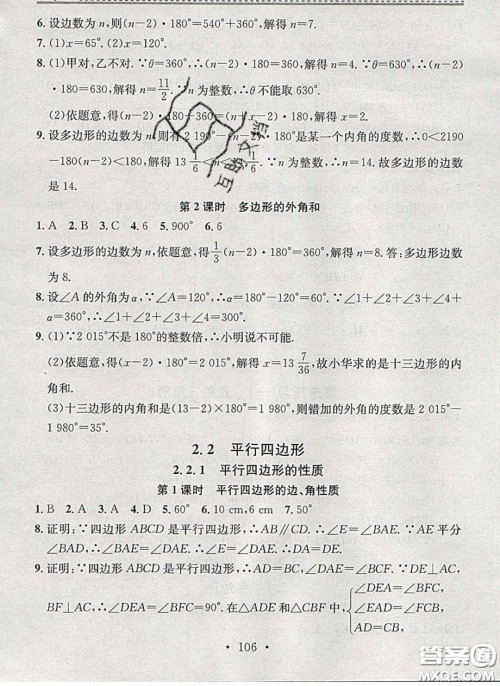 6. 设边数为 n,则(n-2)·180°=540°+360°,解得 n=7.
7. (1)x=65°. (2)x=120°.
8. (1)甲对,乙不对. ∵θ=360°,∴(n-2)·180=360,解得 n=4. ∵θ=630°,∴(n-2)
·180=630,解得 n=11/2. ∵n 为整数,∴θ 不能取 630°.
(2)依题意,得(n-2)·180+360=(n+x-2)·180,解得 x=2.
9. 设多边形的边数为 n,则有 2 190°-(n-2)·180°是某一个内角的度数,∴0<2190
-180(n-2)<180,解得 13 1/6<n<14 1/6. ∵n 为整数,∴n=14. 故多边形的边数
是 14.
第 2 课时 多边形的外角和
1. A 2. B 3. C 4. 6 5. 900° 6. 6
7. 设多边形的边数为 n,依题意,得 1/3(n-2)·180°=360°,解得 n=8. 答:多边形的边数
为 8.
8. 设∠A 的外角为 α,∵∠A=120°,∴α=180°-120°=60°. ∵∠1+∠2+∠3+∠4+
α=360°,∴∠1+∠2+∠3+∠4=300°.
9. (1)∵2 015°不是 180°的整数倍,∴小明说不可能.
(2)依题意,得(x-2)·180°=2 015°,解得 x=13 7/36,故小华求的是十三边形的内
角和.
(3)十三边形的内角和是(13-2)×180°=1 980°,则错加的外角的度数是 2 015°-
1 980°=35°.
2.2 平行四边形
2.2.1 平行四边形的性质
第 1 课时 平行四边形的边、角性质
1. B 2. D 3. A 4. D 5. 60° 6. 10 cm,6 cm 7. 50°
8. 证明:∵四边形 ABCD 是平行四边形,∴AB∥CD. ∴∠E=∠BAE. ∵AE 平分
∠BAD,∴∠BAE=∠DAE. ∴∠E=∠DAE. ∴DA=DE.
9. 证明:∵四边形 ABCD 是平行四边形,∴AD=BC,∠DAE=∠BCF. ∵DE⊥AC,
BF⊥AC,∴∠DEA=∠BFC=90°. 在△ADE 和△CBF 中,
∠DEA=∠BFC,
∠DAE=∠BCF,
AD=CB,
·106·
答案圈
MXQE.COM